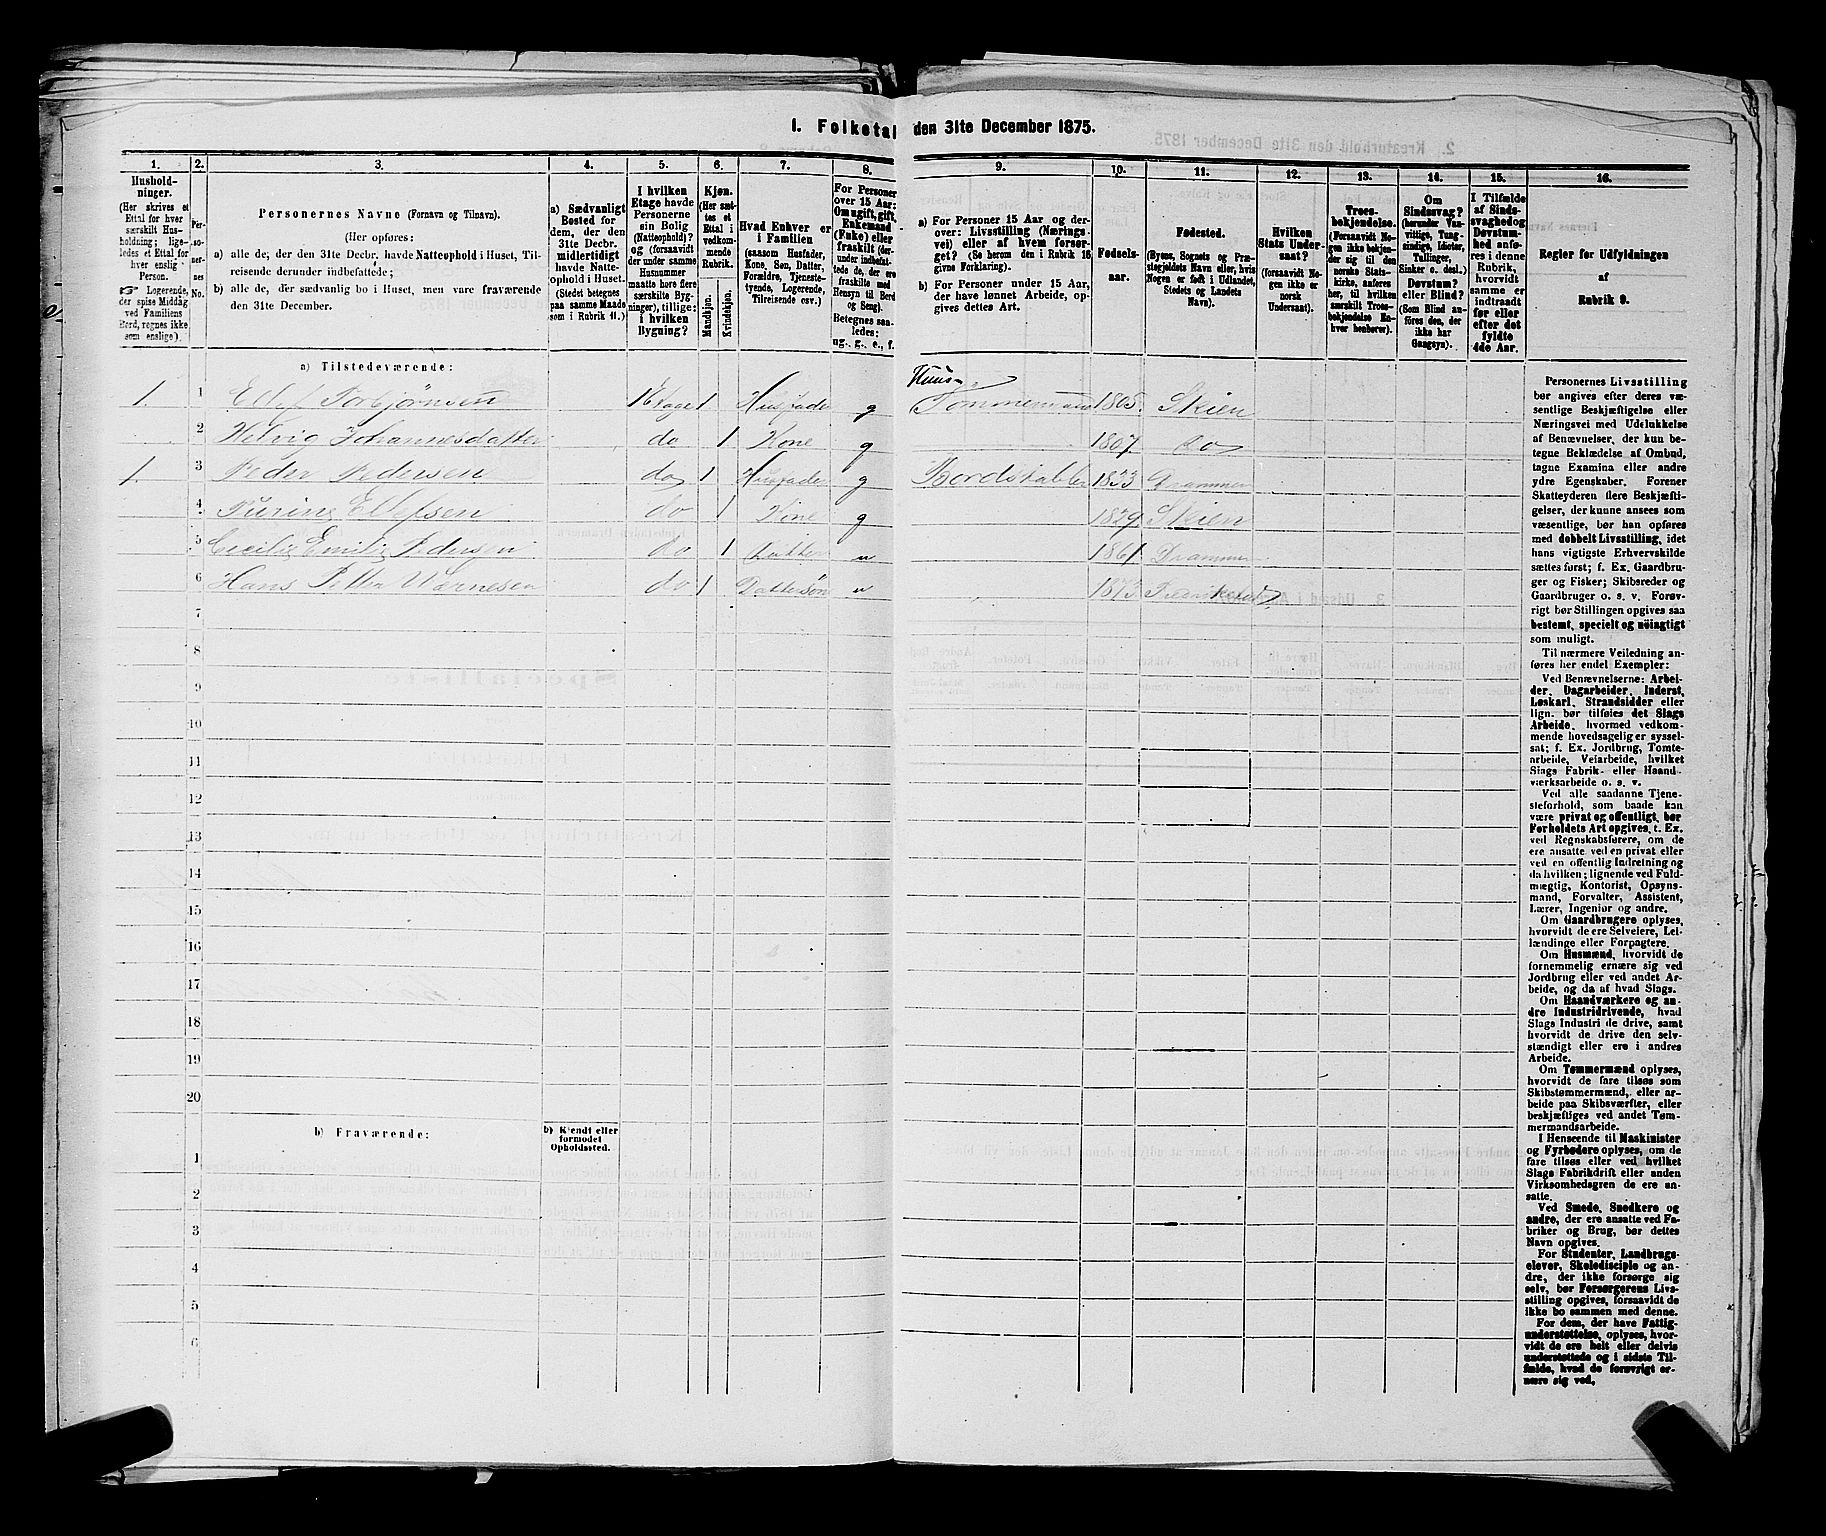 1. Folketal den 31te December 1875.
1.
2.
3.
4.
5.
6.
7.
8.
9.
10.
11.
12.
13.
14.
15.
16.
Hushold-
ninger.
(Her skrives et
Ettal for hver
særskilt Hus-
holdning; lige-
ledes et Ettal for
hver enslig
Person.
☞ Logerende,
der spise Middag
ved Familiens
Bord, regnes ikke
som enslige).
Per-
so-
ner-
nes
No.
Personernes Navne (Fornavn og Tilnavn).
(Her opføres:
a) alle de, der den 31te Decbr. havde Natteophold i Huset, Til-
reisende derunder indbefattede;
b) alle de, der sædvanlig bo i Huset, men vare fraværende
den 31te December.
a) Sædvanligt
Bosted for
dem, der den
31te Decbr.
midlertidigt
havde Natte-
ophold i Huset.
(Stedet betegnes
paa samme Maade
som i Rubrik 11.)
I hvilken
Etage havde
Personerne
sin Bolig
(Natteophold)?
og (forsaavidt
der under samme
Husnummer
maatte høre flere
særskilte Byg-
ninger), tillige:
i hvilken
Bygning?
Kjøn.
(Her sæt-
tes et
Ettal i
vedkom-
mende
Rubrik.
Mandkjøn.
Kvindekjøn.
Hvad Enhver er
i Familien
(saasom Husfader,
Kone, Søn, Datter,
Forældre, Tjeneste-
tyende, Logerende,
Tilreisende osv.)
For Personer
over 15 Aar:
Om ugift, gift,
Enkemand
(Enke) eller
fraskilt (der-
under indbefat-
tede de, der ere
fraskilte med
Hensyn til Bord
og Seng).
Betegnes saa-
ledes:
ug., g., e., f.
a) For Personer 15 Aar og der-
over: Livsstilling (Nærings-
vei) eller af hvem forsør-
get? (Se herom den i Rubrik 16
givne Forklaring).
b) For Personer under 15 Aar,
der have lønnet Arbeide, op-
gives dettes Art.
Fødsels-
aar.
Fødested.
(Byens, Sognets og Præ-
stegjeldets Navn eller, hvis
Nogen er født i Udlandet,
Stedets og Landets
Navn).
Hvilken
Stats Under-
saat?
(forsaavidt No-
gen ikke er
norsk
Undersaat).
Troes-
bekjendelse.
(Forsaavidt No-
gen ikke bekjen-
der sig til den
norske Stats-
kirke, anføres
her, til hvilken
særskilt Troes-
bekjendelse En-
hver henhører).
Om
Sindssvag?
(herunder Van-
vittige, Tung-
sindige, Idioter,
Tullinger,
Sinker o. desl.)
Døvstum?
eller Blind?
(Som Blind an-
føres den, der
ikke har
Gangsyn).
I Tilfælde
af Sinds-
svaghed og
Døvstum-
hed anfø-
res i denne
Rubrik,
hvorvidt
samme er
indtraadt
før eller
efter det
fyldte
4de Aar.
Regler for Udfyldningen
af
Rubrik 9.
a) Tilstedeværende:
1. 1 Ellef Torbjørnsen 1 Etage 1 Husfader g Huus- Tømmermand 1805. Skien
2 Helvig Johannesdatter do 1 Kone g 1807. do
1. 3 Peder Pedersen do 1 Husfader g Bordstabler 1833 Drammen
4 Turine Ellefsen do 1 Kone g 1829 Skien
5 Cecilie Emilie Pedersen do 1 Datter u 1861 Drammen
6 Hans do 1 Dattersøn u 1873
7
8
9
10
11
12
13
14
15
16
17
18
19
20
b) Fraværende:
b) Kjendt eller
formodet
Opholdssted.
1
2
3
4
5
6
Personernes Livsstilling
bør angives efter deres væ-
sentlige Beskjæftigelse eller
Næringsvei med Udelukkelse
af Benævnelser, der kun be-
tegne Beklædelse af Ombud,
tagne Examina eller andre
ydre Egenskaber. Forener
Skatteyderen flere Beskjæfti-
gelser, der kunne ansees som
væsentlige, bør han opføres
med dobbelt Livsstilling, idet
hans vigtigste Erhvervskilde
sættes først; f. Ex. Gaardbru-
ger og Fisker; Skibsreder og
Gaardbruger o. s. v. Forøv-
rigt bør Stillingen opgives saa
bestemt, specielt og nøiagtigt
som muligt.
Til nærmere Veiledning an-
føres her endel Exempler:
Ved Benævnelserne: Arbei-
der, Dagarbeider, Inderst,
Løskarl, Strandsidder eller
lign. bør tilføies det Slags
Arbeide, hvormed vedkom-
mende hovedsagelig er syssel-
sat; f. Ex. Jordbrug, Tomte-
arbeide, Veiarbeide, hvilket
Slags Fabrik- eller Haand-
værksarbeide o. s. v.
Ved alle saadanne Tjene-
steforhold, som baade kan
være privat og offentligt, bør
Forholdets Art opgives, t. Ex.
ved Regnskabsførere, om de
ere ansatte ved en privat eller
ved en offentlig Indretning og
da hvilken; lignende ved Fuld-
mægtig, Kontorist, Opsyns-
mand, Forvalter, Assistent,
Lærer, Ingeniør og andre.
Om Gaardbrugere oplyses,
hvorvidt de ere Selveiere, Lei-
lændinge eller Forpagtere.
Om Husmænd, hvorvidt de
fornemmelig ernære sig ved
Jordbrug eller ved andet Ar-
beide, og da af hvad Slags.
Om Haandværkere og an-
dre Industridrivende, hvad
Slags Industri de drive, samt
hvorvidt de drive den selv-
stændigt eller ere i andres
Arbeide.
Om Tømmermænd oplyses,
hvorvidt de fare tilsøs som
Skibstømmermænd, eller ar-
beide paa Skibsværfter, eller
beskjæftiges ved andet Tøm-
mermandsarbeide.
I Henseende til Maskinister
og Fyrbødere oplyses, om de
fare tilsøs eller ved hvilket
Slags Fabrikdrift eller anden
Virksomhedsgren de ere an-
satte.
Ved Smede, Snedkere og
andre, der ere ansatte ved Fa-
briker og Brug, bør dettes
Navn opgives.
For Studenter, Landbrugs-
elever, Skoledisciple og an-
dre, der ikke forsørge sig
selv, bør Forsørgerens Livs-
stilling opgives, forsaavidt de
ikke bo sammen med denne.
For dem, der have Fattig-
understøttelse, oplyses, hvor-
vidt de ere helt eller delvis
understøttede og i sidste Til-
fælde, hvad de forøvrigt er-
nære sig ved.